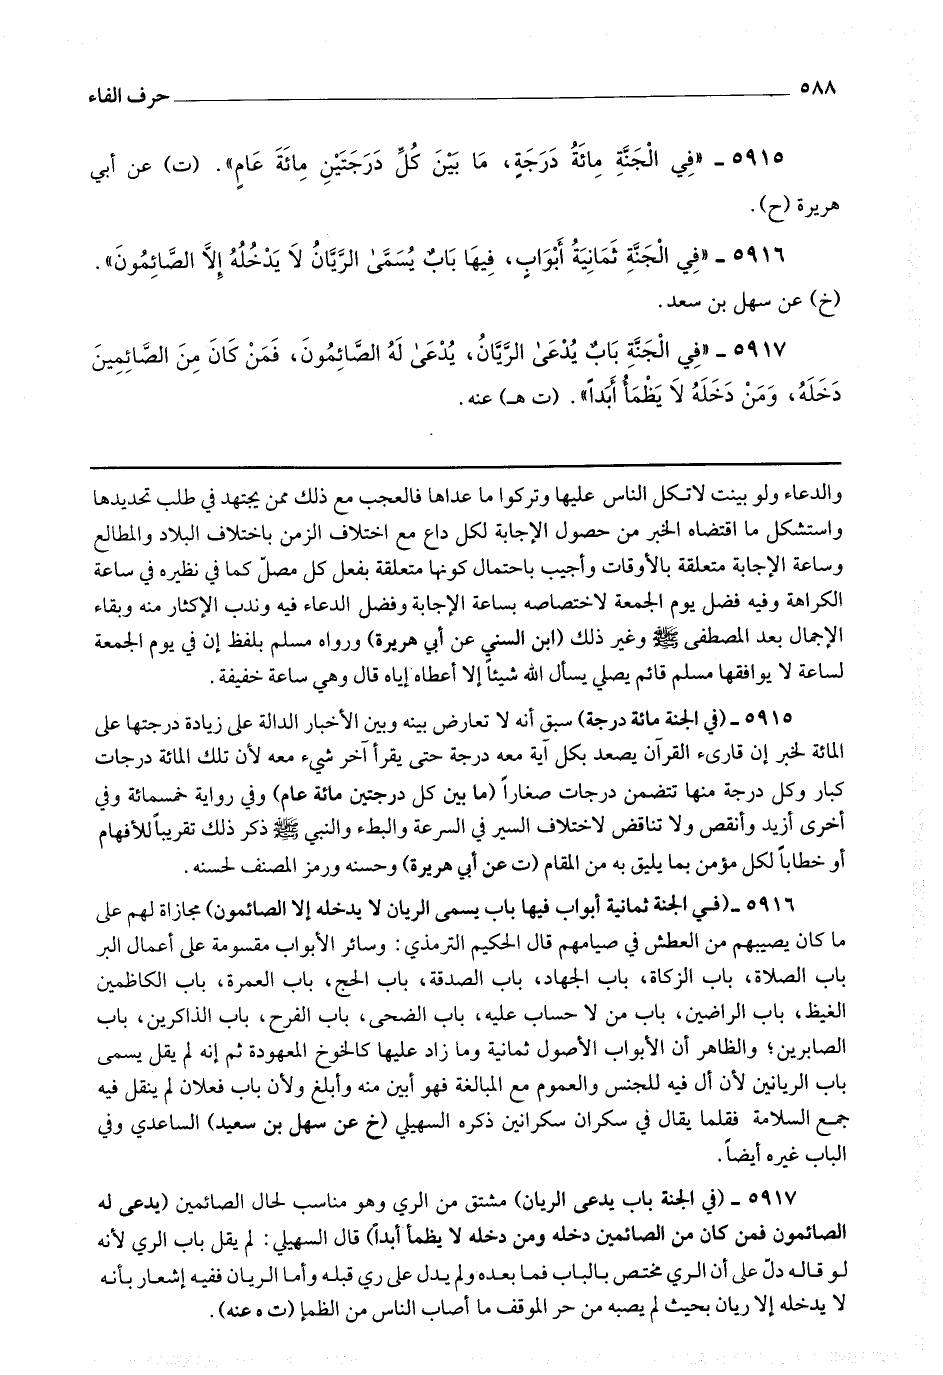 ٥٨٨ حرف الفاء
٥٩١٥ ـ «فِي الْجَنَّةِ مِائَةُ دَرَجَةٍ، مَا بَيْنَ كُلِّ دَرَجَتَيْنِ مِائَةَ عَامٍ». (ت) عن أبي
هريرة (ح).
٥٩١٦ ـ «فِي الْجَنَّةِ ثَمَانِيَةُ أَبْوَابٍ، فِيهَا بَابٌ يُسَمَّىٰ الرَّيَّانُ لَا يَدْخُلُهُ إِلَّا الصَّائِمُونَ».
(خ) عن سهل بن سعد.
٥٩١٧ ـ «فِي الْجَنَّةِ بَابٌ يُدْعَىٰ الرَّيَّانُ، يُدْعَىٰ لَهُ الصَّائِمُونَ، فَمَنْ كَانَ مِنَ الصَّائِمِينَ
دَخَلَهُ، وَمَنْ دَخَلَهُ لَا يَظْمَأُ أَبَداً». (ت هـ) عنه.
والدعاء ولو بينت لاتكل الناس عليها وتركوا ما عداها فالعجب مع ذلك ممن يجتهد في طلب تحديدها
واستشكل ما اقتضاه الخبر من حصول الإجابة لكل داع مع اختلاف الزمن باختلاف البلاد والمطالع
وساعة الإجابة متعلقة بالأوقات وأجيب باحتمال كونها متعلقة بفعل كل مصلّ كما في نظيره في ساعة
الكراهة وفيه فضل يوم الجمعة لاختصاصه بساعة الإجابة وفضل الدعاء فيه وندب الإكثار منه وبقاء
الإجمال بعد المصطفى ﷺ وغير ذلك (ابن السني عن أبي هريرة) ورواه مسلم بلفظ إن في يوم الجمعة
لساعة لا يوافقها مسلم قائم يصلي يسأل الله شيئاً إلا أعطاه إياه قال وهي ساعة خفيفة.
٥٩١٥ ـ (في الجنة مائة درجة) سبق أنه لا تعارض بينه وبين الأخبار الدالة على زيادة درجتها على
المائة لخبر إن قارىء القرآن يصعد بكل آية معه درجة حتى يقرأ آخر شيء معه لأن تلك المائة درجات
كبار وكل درجة منها تتضمن درجات صغاراً (ما بين كل درجتين مائة عام) وفي رواية خمسمائة وفي
أخرى أزيد وأنقص ولا تناقض لاختلاف السير في السرعة والبطء والنبي ﷺ ذكر ذلك تقريباً للأفهام
أو خطاباً لكل مؤمن بما يليق به من المقام (ت عن أبي هريرة) وحسنه ورمز المصنف لحسنه.
٥٩١٦ ـ (في الجنة ثمانية أبواب فيها باب يسمى الريان لا يدخله إلا الصائمون) مجازاة لهم على
ما كان يصيبهم من العطش في صيامهم قال الحكيم الترمذي: وسائر الأبواب مقسومة على أعمال البر
باب الصلاة، باب الزكاة، باب الجهاد، باب الصدقة، باب الحج، باب العمرة، باب الكاظمين
الغيظ، باب الراضين، باب من لا حساب عليه، باب الضحى، باب الفرح، باب الذاكرين، باب
الصابرين؛ والظاهر أن الأبواب الأصول ثمانية وما زاد عليها كالخوخ المعهودة ثم إنه لم يقل يسمى
باب الريانين لأن أل فيه للجنس والعموم مع المبالغة فهو أبين منه وأبلغ ولأن باب فعلان لم ينقل فيه
جمع السلامة فقلما يقال في سكران سكرانين ذكره السهيلي (خ عن سهل بن سعيد) الساعدي وفي
الباب غيره أيضاً.
٥٩١٧ ـ (في الجنة باب يدعى الريان) مشتق من الري وهو مناسب لحال الصائمين (يدعى له
الصائمون فمن كان من الصائمين دخله ومن دخله لا يظمأ أبداً) قال السهيلي: لم يقل باب الري لأنه
لو قاله دلّ على أن الري مختص بالباب فما بعده ولم يدل على ري قبله وأما الريان ففيه إشعار بأنه
لا يدخله إلا ريان بحيث لم يصبه من حر الموقف ما أصاب الناس من الظمإ (ت ه عنه).